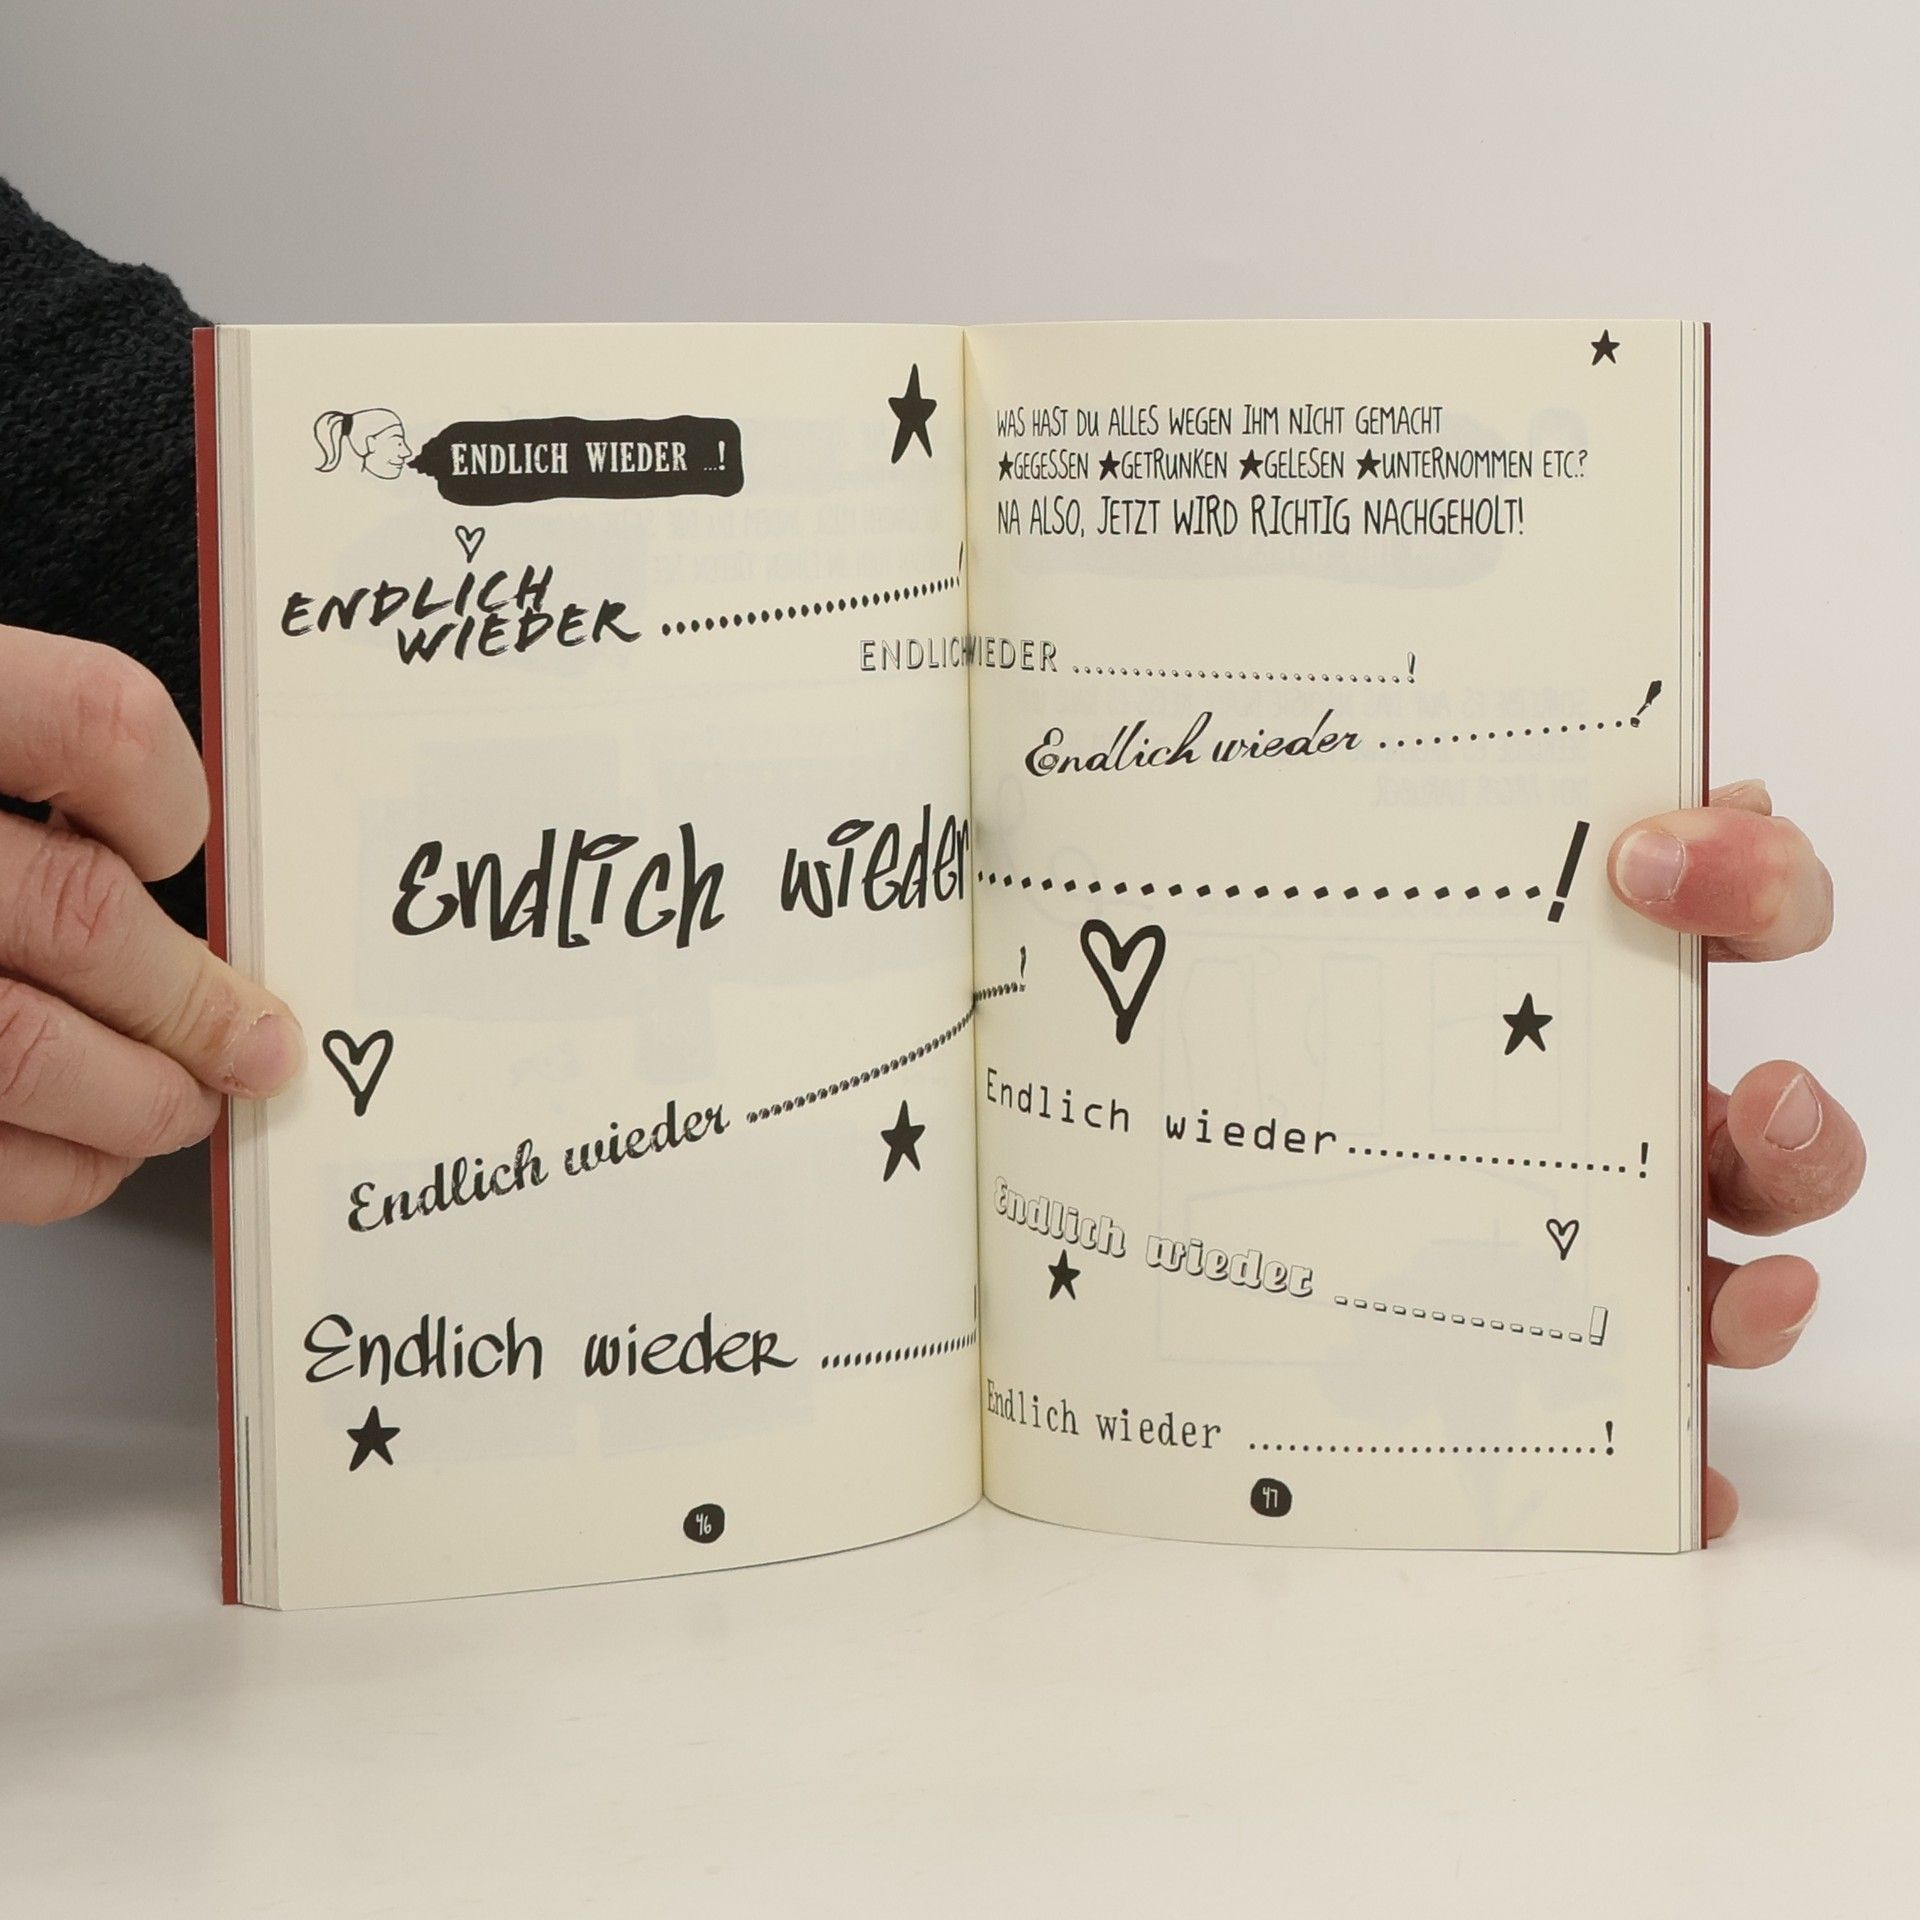 ENDLICH WIEDER ...!
ENDLICH
WIEDER ........................!
ENDLICH WIEDER ........................!
Endlich wieder ........................!
Endlich wieder ........................!
Endlich wieder ........................!
Endlich wieder ........................!
46
WAS HAST DU ALLES WEGEN IHM NICHT GEMACHT
★GEGESSEN ★GETRUNKEN ★GELESEN ★UNTERNOMMEN ETC.?
NA ALSO, JETZT WIRD RICHTIG NACHGEHOLT!
Endlich wieder..................!
Endlich wieder ..............!
Endlich wieder ..........................!
47